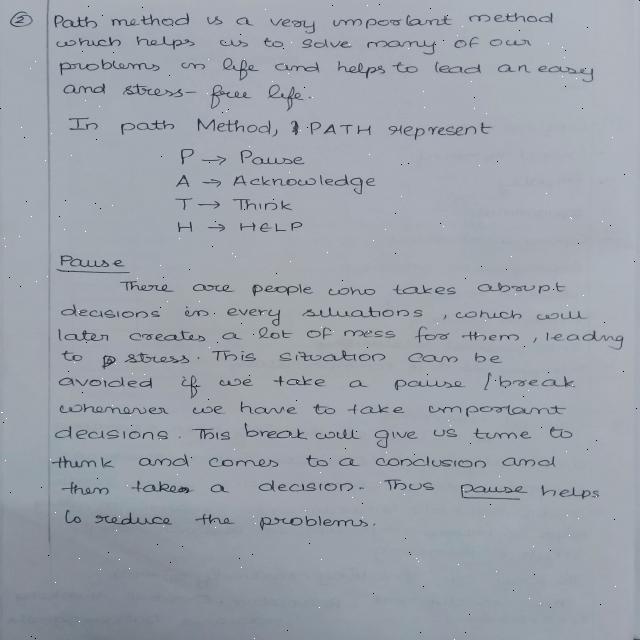 ② Path method is a very important method
which helps us to solve many of our
problems in life and helps to lead an easy
and stress-free life.
In path Method, PATH represent
P → Pause
A → Acknowledge
T → Think
H → HELP
Pause
There are people who takes abrupt
decisions in every situations, which will
later creates a lot of mess for them, leading
to stress. This situation can be
avoided if we take a pause / break
whenever we have to take important
decisions. This break will give us time to
think and comes to a conclusion and
then take a decision. Thus pause helps
to reduce the problems.